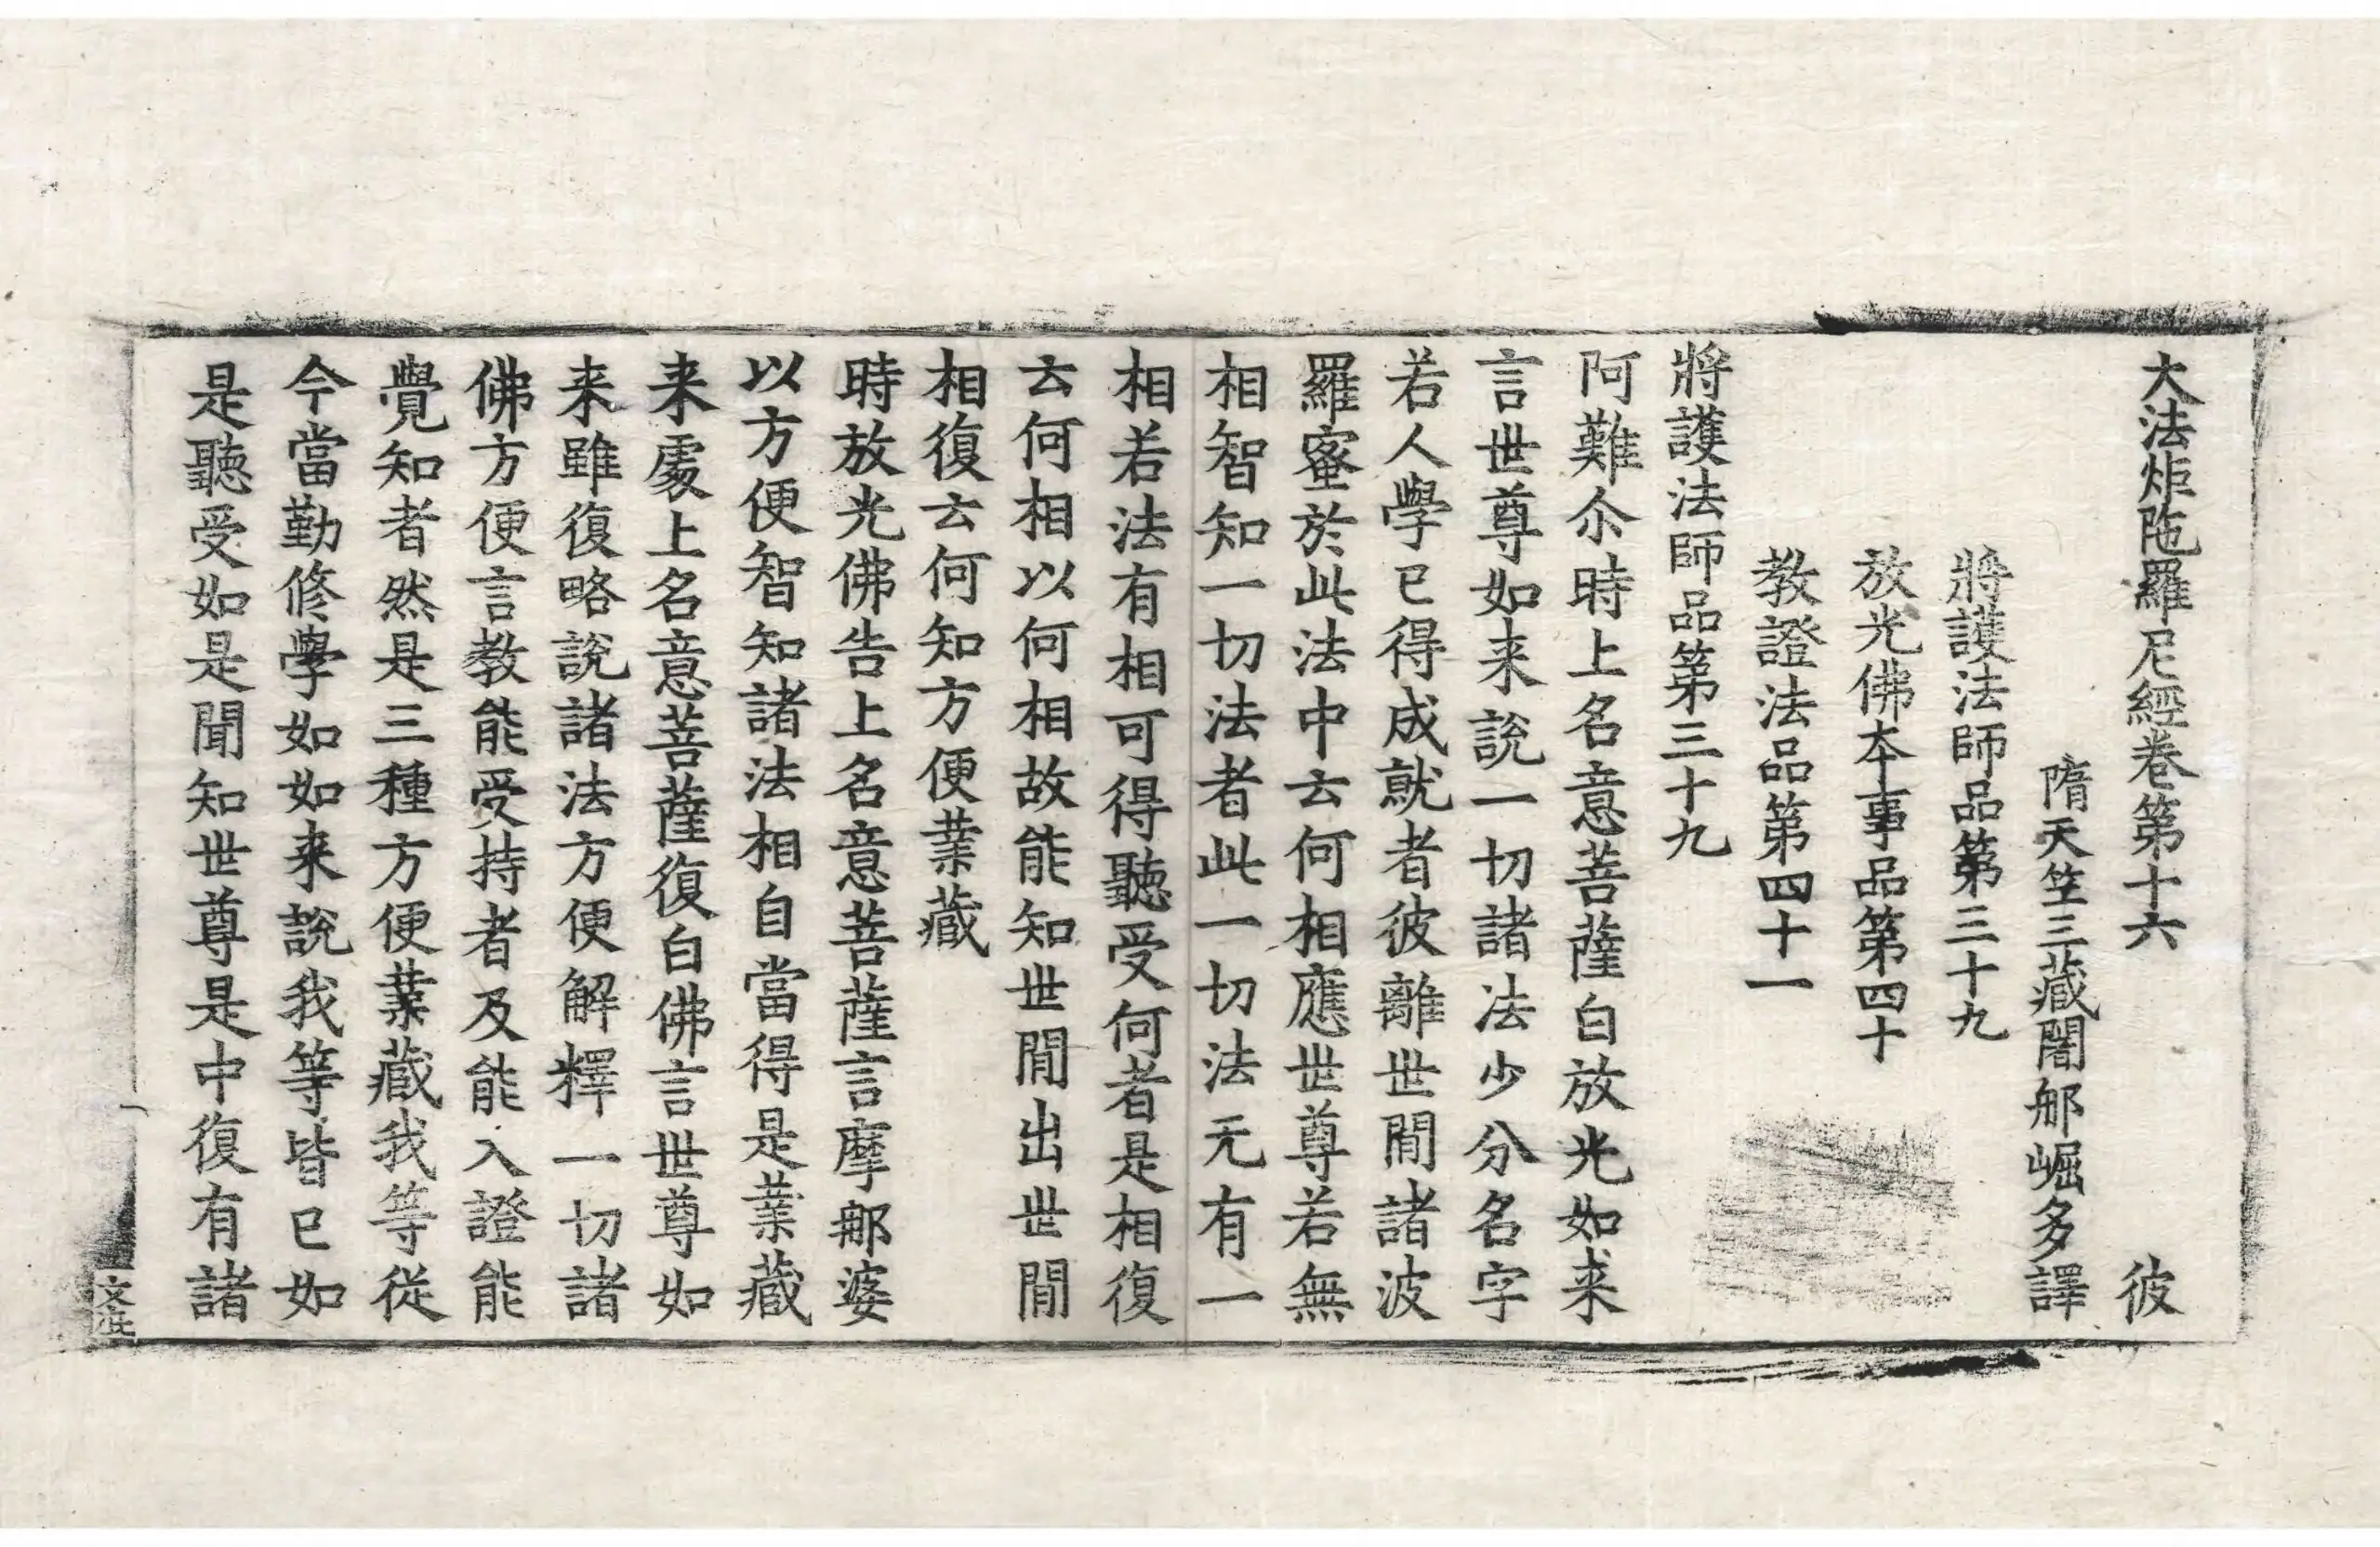 大法炬陁羅尼經卷第十六　彼
隋天竺三藏闍那崛多譯
將護法師品第三十九
放光佛本事品第四十
教證法品第四十一
將護法師品第三十九
阿難尒時上名意菩薩白放光如来
言世尊如来說一切諸法少分名字
若人學已得成就者彼離世間諸波
羅蜜於此法中云何相應世尊若無
相智知一切法者此一切法无有一
相若法有相可得聽受何者是相復
云何相以何相故能知世間出世間
相復云何知方便業藏
時放光佛告上名意菩薩言摩那婆
以方便智知諸法相自當得是業藏
来處上名意菩薩復白佛言世尊如
来雖復略說諸法方便解釋一切諸
佛方便言教能受持者及能入證能
覺知者然是三種方便業藏我等従
今當勤修學如如来說我等皆已如
是聽受如是聞知世尊是中復有諸